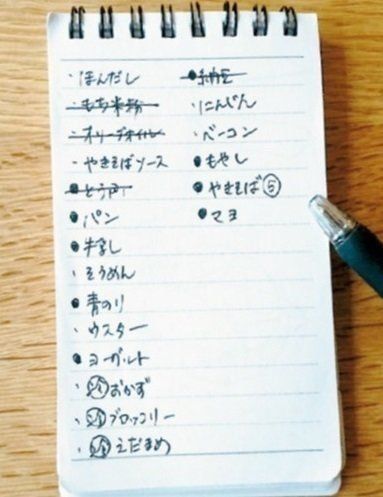 ・ほんだし
・オリーブオイル
・やきそばソース
●パン
●牛乳
・そうめん
●青のり
・ウスター
●ヨーグルト
・おかず
・ブロッコリー
・えだまめ
●納豆
・にんじん
・ベーコン
●もやし
●やきそば⑤
●マヨ